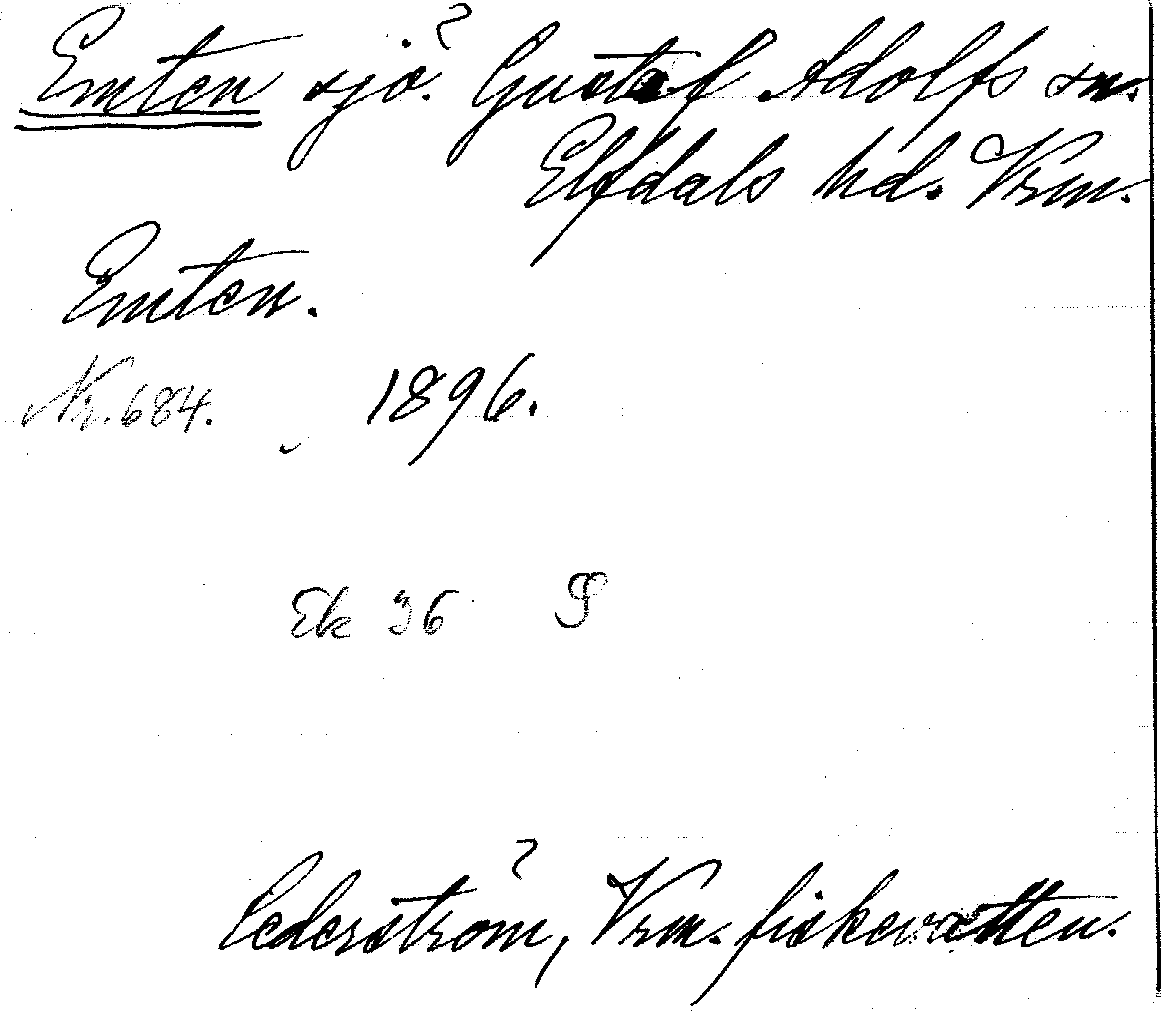 Emten sjö. Gustaf Adolfs sn.
Elfdals hd. Vrm.
Emten.
Nr. 684. 1896.
Ek 36
Cederström, Vrm. fiskevatten.